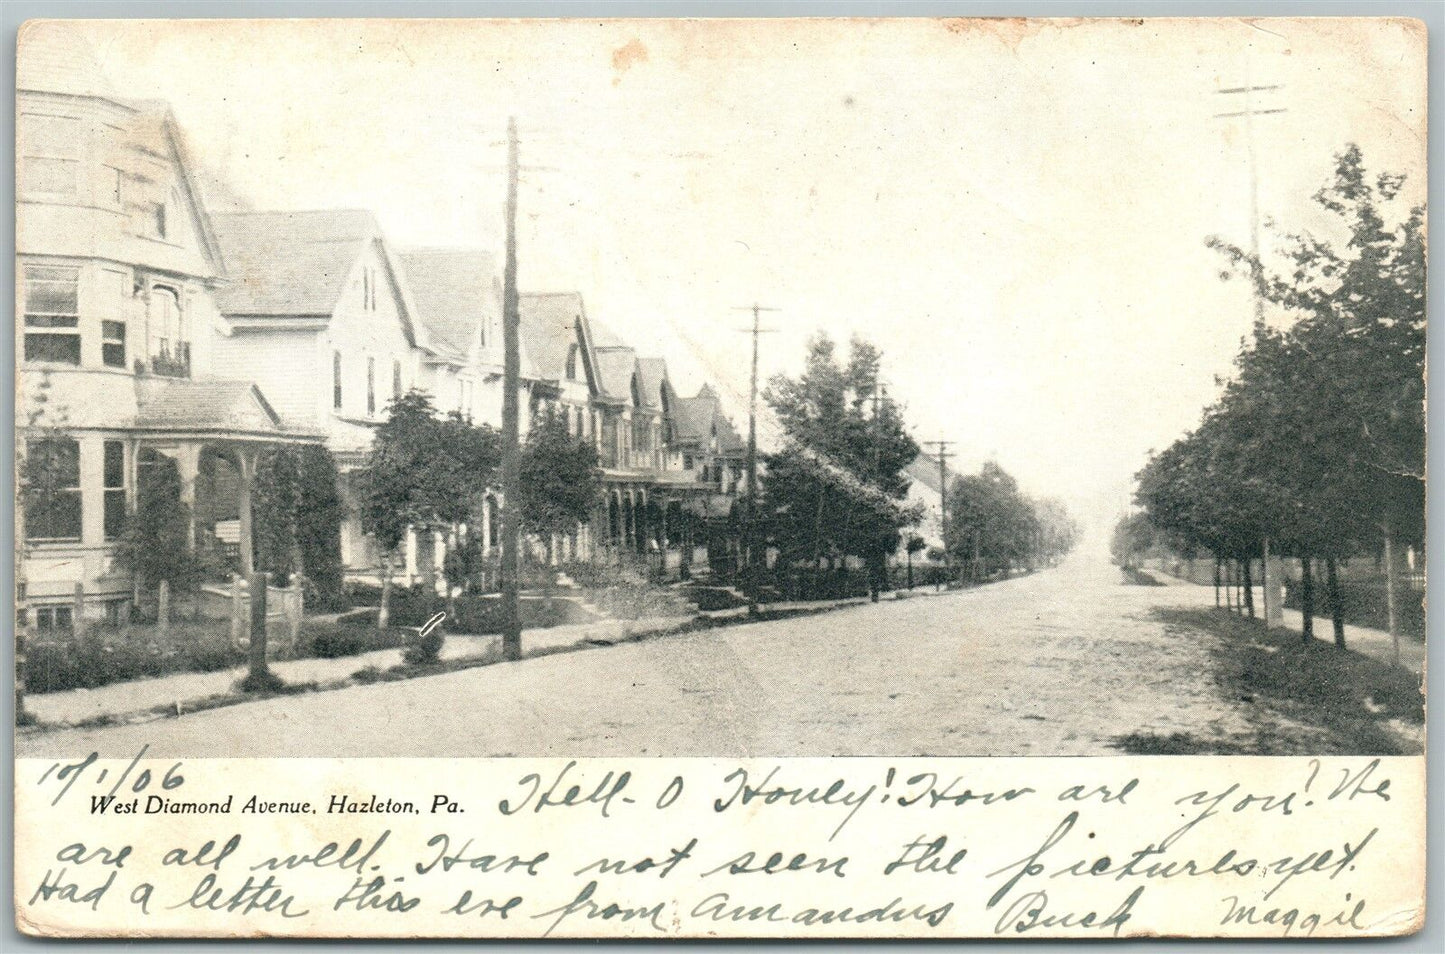 10/1/06
West Diamond Avenue, Hazleton, Pa.
Hell-O Honey! How are you? We
are all well. Have not seen the pictures yet.
Had a letter this eve from Amandus Buck Maggie